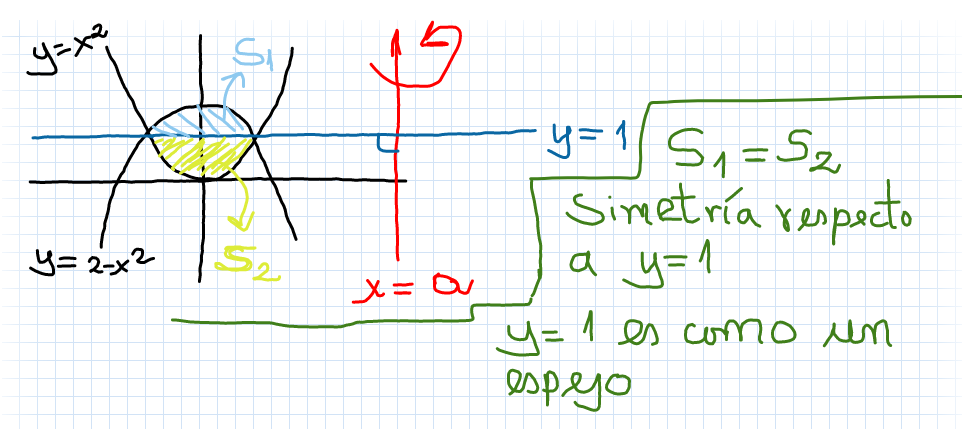 y=x²
S₁
y=1
S₁=S₂
Simetría respecto
a y=1
y=2-x²
S₂
x=a
y=1 es como un
espejo